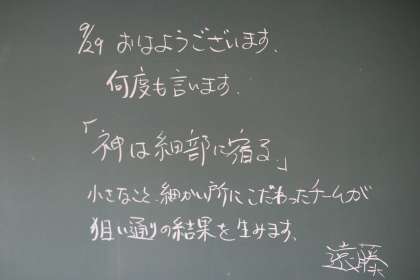 9/29 おはようございます、
何度も言います.
「神は細部に宿る。」
小さなこと、細かい所にこだわったチームが
狙い通りの結果を生みます、
遠藤